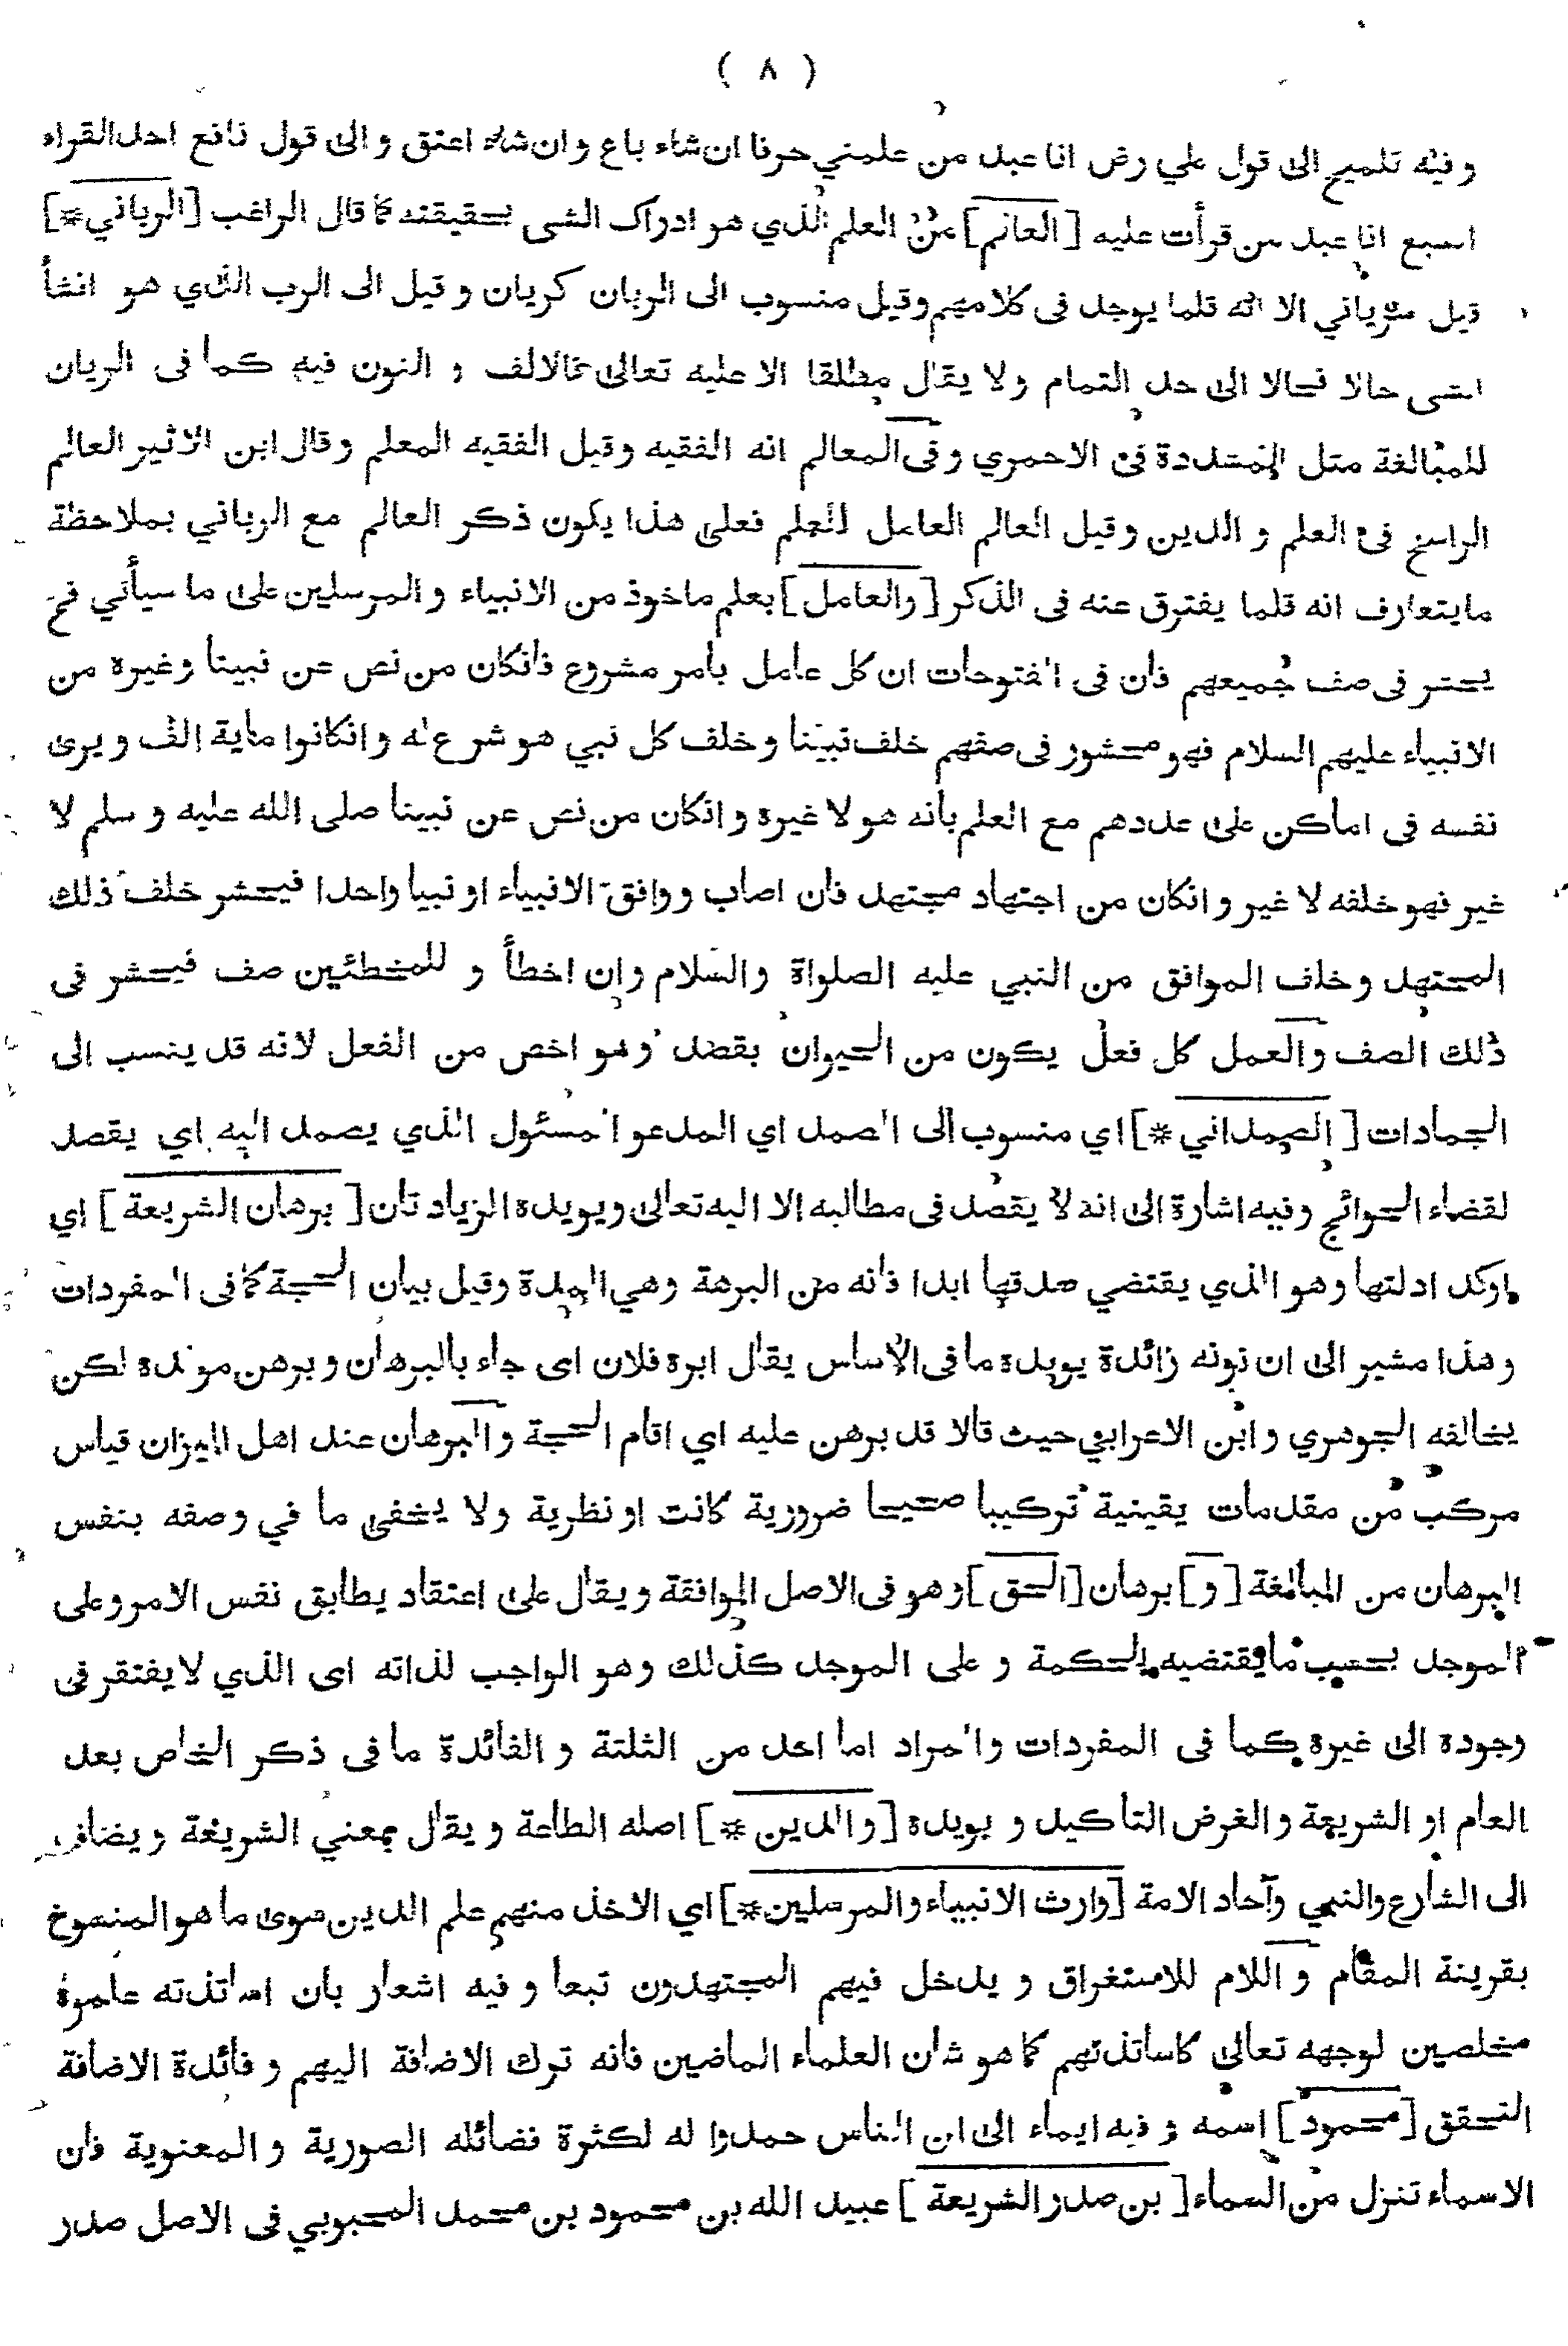 ( ٨ )
و فيه تلميح الى قول علي رض انا عبد من علمني حرفا ان شاء باع و ان شاء اعتق و الى قول نافع احد القراء
السبع انا عبد من قرأت عليه [ العالم ] من العلم الذي هو ادراك الشى بحقيقته كما قال الراغب [ الرباني * ]
قيل سرياني الا انه قلما يوجد فى كلامهم وقيل منسوب الى الربان كريان و قيل الى الرب الذي هو انشأ
الشى حالا فحالا الى حد التمام و لا يقال مطلقا الا عليه تعالى فالالف و النون فيه كما فى الريان
للمبالغة مثل المشددة فى الاحمري و فى المعالم انه الفقيه و قيل الفقيه المعلم و قال ابن الاثير العالم
الراسخ فى العلم و الدين و قيل العالم العامل المعلم فعلى هذا يكون ذكر العالم مع الرباني بملاحظة
ما يتعارف انه قلما يفترق عنه فى الذكر [ والعامل ] بعلم ماخوذ من الانبياء و المرسلين على ما سيأتي فح
يحشر فى صف جميعهم فان فى الفتوحات ان كل عامل بامر مشروع فانكان من نص عن نبينا و غيره من
الانبياء عليهم السلام فهو محشور فى صفهم خلف نبينا و خلف كل نبي هو شرع له و انكانوا ماية الف و يرى
نفسه فى اماكن على عددهم مع العلم بانه هو لا غيره و انكان من نص عن نبينا صلى الله عليه و سلم لا
غير فهو خلفه لا غير و انكان من اجتهاد مجتهد فان اصاب و وافق الانبياء او نبيا واحدا فيحشر خلف ذلك
المجتهد و خلف الموافق من النبي عليه الصلواة والسلام و ان اخطأ و للمخطئين صف فيحشر فى
ذلك الصف والعمل كل فعل يكون من الحيوان بقصد و هو اخص من الفعل لانه قد ينسب الى
الجمادات [ الصمداني * ] اي منسوب الى الصمد اي المدعو المسئول الذي يصمد اليه اي يقصد
لقضاء الحوائج و فيه اشارة الى انه لا يقصد فى مطالبه الا اليه تعالى و يويده الزيادتان [ برهان الشريعة ] اي
اوكد ادلتها و هو الذي يقتضي صدقها ابدا فانه من البرهة وهي المدة و قيل بيان الحجة كما فى المفردات
و هذا مشير الى ان نونه زائدة يويده ما فى الاساس يقال ابره فلان اى جاء بالبرهان و برهن مولدة لكن
يخالفه الجوهري و ابن الاعرابي حيث قالا قد برهن عليه اي اقام الحجة و البرهان عند اهل الميزان قياس
مركب من مقدمات يقينية تركيبا صحيحا ضرورية كانت او نظرية و لا يخفى ما في وصفه بنفس
البرهان من المبالغة [ و ] برهان [ الحق ] و هو فى الاصل الموافقة و يقال على اعتقاد يطابق نفس الامر و على
الموجد بحسب ما يقتضيه الحكمة و على الموجد كذلك و هو الواجب لذاته اى الذي لا يفتقر فى
وجوده الى غيره كما فى المفردات والمراد اما احد من الثلثة و الفائدة ما فى ذكر الخاص بعد
العام او الشريعة و الغرض التاكيد و يويده [ و الدين * ] اصله الطاعة و يقال بمعني الشريعة و يضاف
الى الشارع والنبي و آحاد الامة [ وارث الانبياء و المرسلين * ] اي الاخذ منهم علم الدين سوى ما هو المنسوخ
بقرينة المقام و اللام للاستغراق و يدخل فيهم المجتهدون تبعا و فيه اشعار بان اساتذته عامرة
مخلصين لوجهه تعالى كاساتذتهم كما هو شان العلماء الماضين فانه ترك الاضافة اليهم و فائدة الاضافة
التحقق [ محمود ] اسمه و فيه ايماء الى ان الناس حمدوا له لكثرة فضائله الصورية و المعنوية فان
الاسماء تنزل من السماء [ بن صدر الشريعة ] عبيد الله بن محمود بن محمد المحبوبي فى الاصل صدر